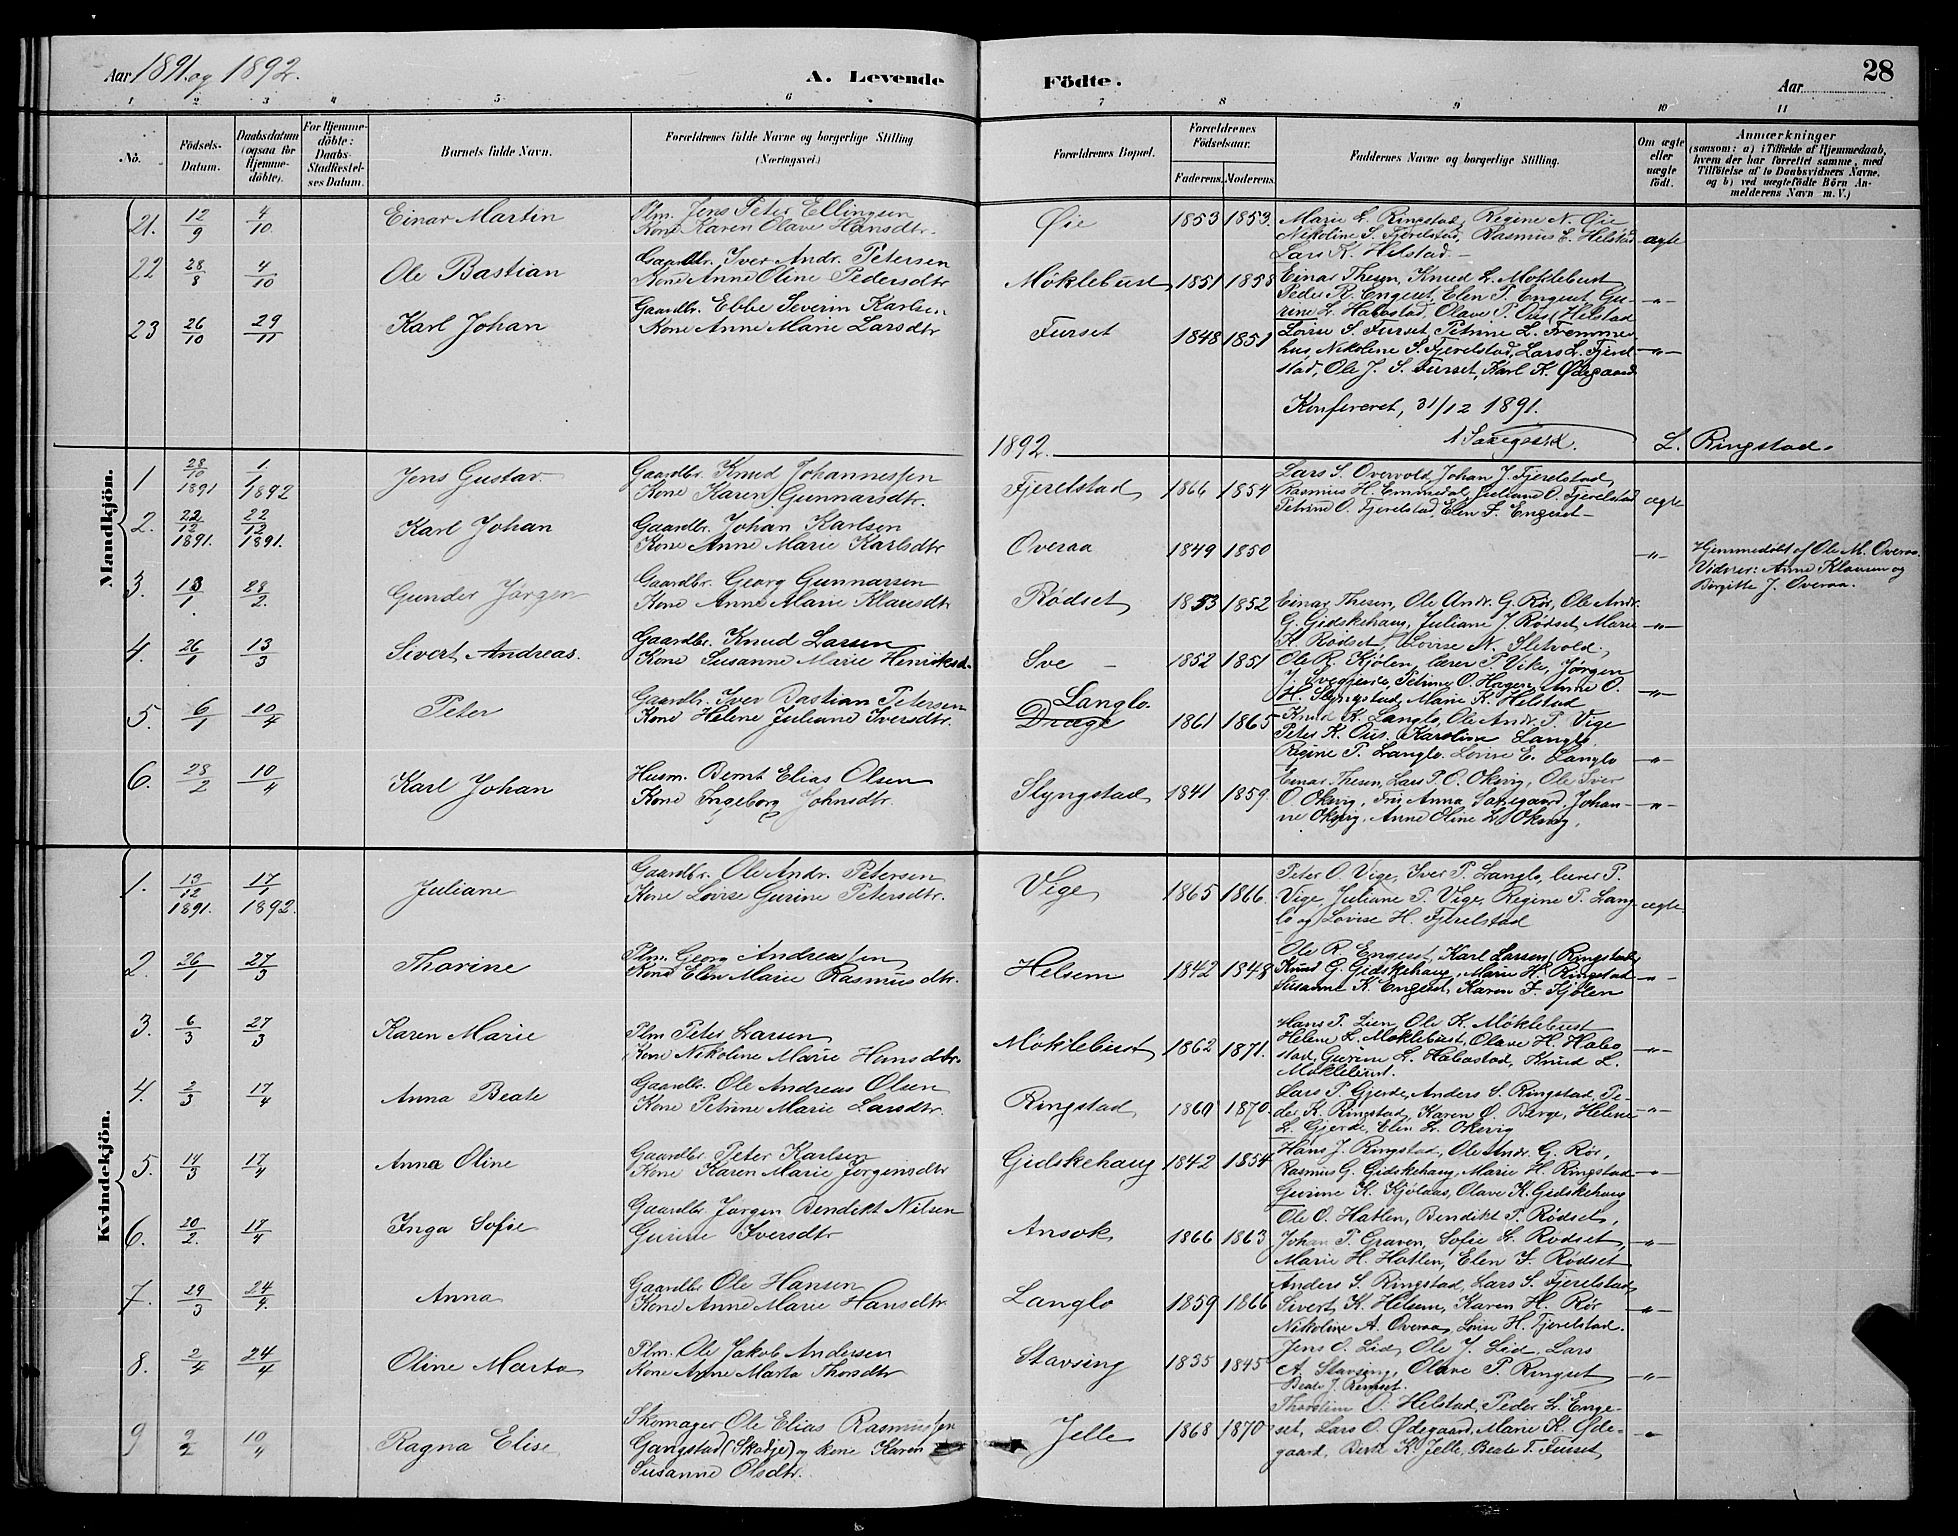 Aar 1891 og 1892.
A. Levende Födte.
Aar
28
1 2 3 4 5 6 7 8 9 10 11
No.
Födsels-Datum.
Daabsdatum (ogsaa for Hjemme-döbte).
For Hjemme-döbte: Daabs-Stadfæstel-ses Datum.
Barnets fulde Navn.
Forældrenes fulde Navne og borgerlige Stilling (Næringsvei.)
Forældrenes Bopæl.
Forældrenes Födselsaar.
Faderens. Moderens.
Faddernes Navne og borgerlige Stilling.
Om ægte eller uægte födt.
Anmærkninger
(saasom: a) i Tilfælde af Hjemmedaab, hvem der har forrettet samme, med Tilföielse af to Daabsvidners Navne, og b) ved uægtefödte Börn Anmelderens Navn m. V.)
21. 12/9 4/10 Einar Martin
Plm. Jens Peter Ellingsen
Kone Karen Olave Hansdtr.
Øie 1853 1853.
Marie L. Ringstad, Regine N. Øie
Nikoline S. Fjerelstad, Rasmus E. Helstad
Lars K. Helstad.
ægte
22 28/8 4/10 Ole Bastian
Gaardbr. Iver Andr. Petersen
Kone Anne Oline Pedersdtr.
Møklebust 1851 1858
Einar Thesen, Knud L. Møklebust
Peder R. Engeset, Elen P. Engeset, Gu-
rine L. Habostad, Olave P. Ous, Helstad
-"-
23 26/10 29/11 Karl Johan
Gaardbr. Ebbe Severin Karlsen
Kone Anne Marie Larsdtr
Furset 1848 1851
Lovise S. Furset, Petrine L. Fremme-
hus, Nikoline S. Fjerelstad, Lars L. Fjerel-
stad, Ole J. S. Furset, Karl K. Ødegaard
-"-
Konfereret, 31/12 1891.
L. Ringstad.
1892.
Mandkjön.
1 28/10 1891 1/1 1892 Jens Gustav
Gaardbr. Knud Johannessen
Kone Karen Gunnarsdtr.
Fjerelstad 1866 1854
Lars S. Overvold, Johan J. Fjerelstad,
Rasmus H. Emmedal, Juliane O. Fjerelstad
Petrine O. Fjerelstad Elen F. Engeset
ægte
2. 22/12 1891. 22/12 1891. Karl Johan
Gaardbr. Johan Karlsen
Kone Anne Marie Karlsdtr
Overaa 1849 1850
-"-
Hjemmedøbt af Ole M. Overaa.
Vidner: Anne Klausen og
Birgitte J. Overaa.
3. 13/1. 28/2. Gunder Jørgen
Gaardbr. Georg Gunnarsen
Kone Anne Marie Klausdtr
Rødset 1853 1852
Einar Thesen, Ole Andr. G. Rør, Ole Andr.
G. Gidskehaug, Juliane J. Rødset, Marie
K. Rødset, Lovise N. Sletvold,
-"-
4. 26/1 13/3 Sivert Andreas.
Gaardbr. Knud Larsen
Kone Susanne Marie Henriksd.
Sve 1852 1851
Ole R. Kjølen, lærer P. Vike, Jørgen
J. Sveggende, Petrine O. Haugen, Anne O.
H. Slyngstad, Marie K. Helstad
-"-
5. 6/1 10/4 Peter
Gaardbr. Iver Bastian Petersen
Kone Helene Juliane Iversdtr.
Langlo.
Drage 1861 1865
Knud K. Langlo, Ole Andr. P. Vige
Peter K. Ous, Karoline Langlo
Regine P. Langlo, Lovise E. Langlo
-"-
6. 28/2 10/4 Karl Johan
Husm. Bernt Elias Olsen
Kone Ingeborg Johnsdtr.
Slyngstad 1841 1859
Einar Thesen, Lars P. O. Oksvig, Ole Iver
O. Oksvig, Frk Anna Saxegaard, Johan-
ne Oksvig, Anne Oline L. Oksvig.
-"-
Kvindekjön.
1. 13/12 1891. 17/1 1892. Juliane
Gaardbr. Ole Andr. Petersen
Kone Lovise Gurine Petersdtr.
Vige 1865 1866.
Peter O. Vige, Iver P. Langlo, lærer P.
Vige, Juliane P. Vige, Regine P. Lang-
lo og Lovise H. Fjerelstad
ægte
2. 26/1 27/3 Thorine
Plm. Georg Andreassen
Kone Elen Marie Rasmusdtr.
Helsem 1842 1848
Ole R. Engeset, Karl Larsen Ringstad,
Knud G. Gidskehaug, Marie H. Ringstad
Susanne K. Engeset, Karen F. Kjølen
-"-
3. 6/3 27/3 Karen Marie
Plm Peter Larsen
Kone Nikoline Marie Hansdtr.
Møklebust 1862 1871.
Hans P. Lien, Ole K. Møklebust
Helene L. Møklebust, Olave H. Habo-
stad, Gurine L. Habostad, Knud L.
Møklebust.
-"-
4. 2/3 17/4 Anna Beate
Gaardbr. Ole Andreas Olsen
Kone Petrine Marie Larsdtr.
Ringstad 1860 1870
Lars P. Gjerde, Anders S. Ringstad, Pe-
der K. Ringstad, Karen O. Berge, Helene
L. Gjerde, Elen L. Oksvig
-"-
5. 14/3 17/4 Anna Oline
Gaardbr. Peter Karlsen
Kone Karen Marie Jørgensdtr
Gidskehaug 1842 1854
Hans J. Ringstad, Ole Andr. G. Rør,
Rasmus G. Gidskehaug, Marie H. Ringstad
Gurine K. Kjølaas, Olave K. Gidskehaug
-"-
6. 20/2. 17/4 Inga Sofie
Gaardbr Jørgen Bendikt Nilsen
Gurine Iversdtr
Ansok 1866 1863
Ole O. Hatlen, Bendikt P. Rødset,
Johan P. Graven, Sofie L. Rødset
Marie H. Hatlen, Elen F. Rødset
-"-
7. 29/3 24/4. Anna
Gaardbr Ole Hansen
Kone Anne Marie Hansdtr
Langlo 1859 1866
Anders S. Ringstad, Lars S. Fjerelstad,
Sivert K. Helsem, Karen H. Rør
Nikoline A. Overaa, Lovise H. Fjerelstad.
-"-
8. 2/4 24/4 Oline Marta
Plm. Ole Jakob Andersen
Kone Anne Marta Thorsdtr
Stavsing 1835 1845
Jens O. Lid, Ole J. Lid, Lars
A. Stavsing, Olave P. Ringset
Beate J. Ringset.
-"-
9 2/2 10/4 Ragna Elise
Skomager Ole Elias Rasmussen
Gangstad (Skodje) og kone Karen
Susanne Olsdtr.
Jelle 1868 1870
Thoroline O. Helstad, Peder L. Enge-
set, Lars O. Ødegaard, Marie K. Øde-
gaard, Berte K. Jelle, Beate T. Furset
"